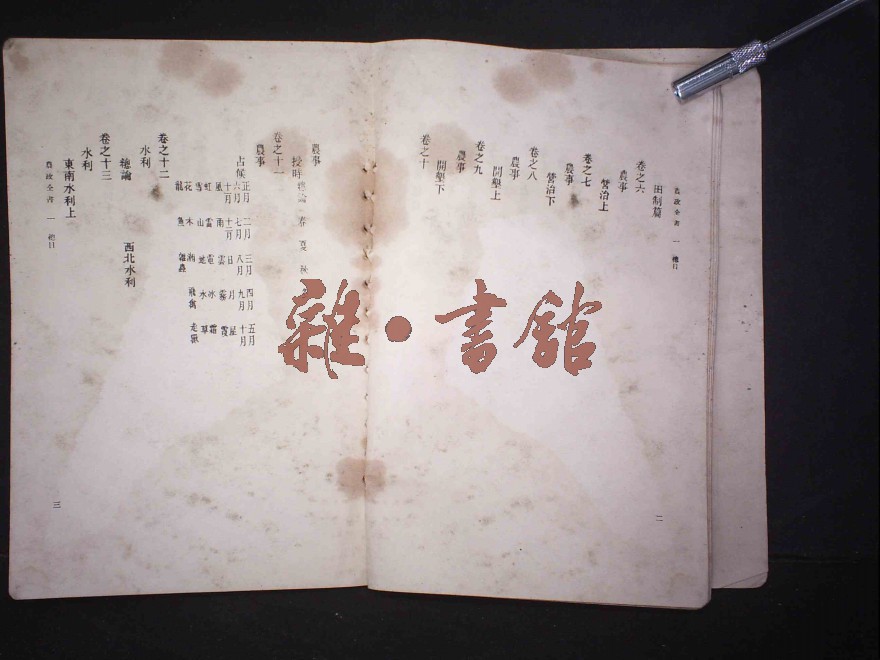 農政全書 一 總目
田制篇
卷之六
農事
營治上
卷之七
農事
營治下
卷之八
農事
開墾上
卷之九
農事
開墾下
卷之十
二
農事
授時 總論 春 夏 秋
卷之十一
農事
占候 正月 二月 三月 四月 五月
六月 七月 八月 九月 十月
十一月 十二月 日 月 星
風 雨 雲 霧 霞
虹 雷 電 冰 霜
雪 山 地 水 草
花 木 飛禽 走獸
龍 魚 雜蟲
卷之十二
水利
總論 西北水利
卷之十三
水利
東南水利上
農政全書 一 總目
三
雜·書館